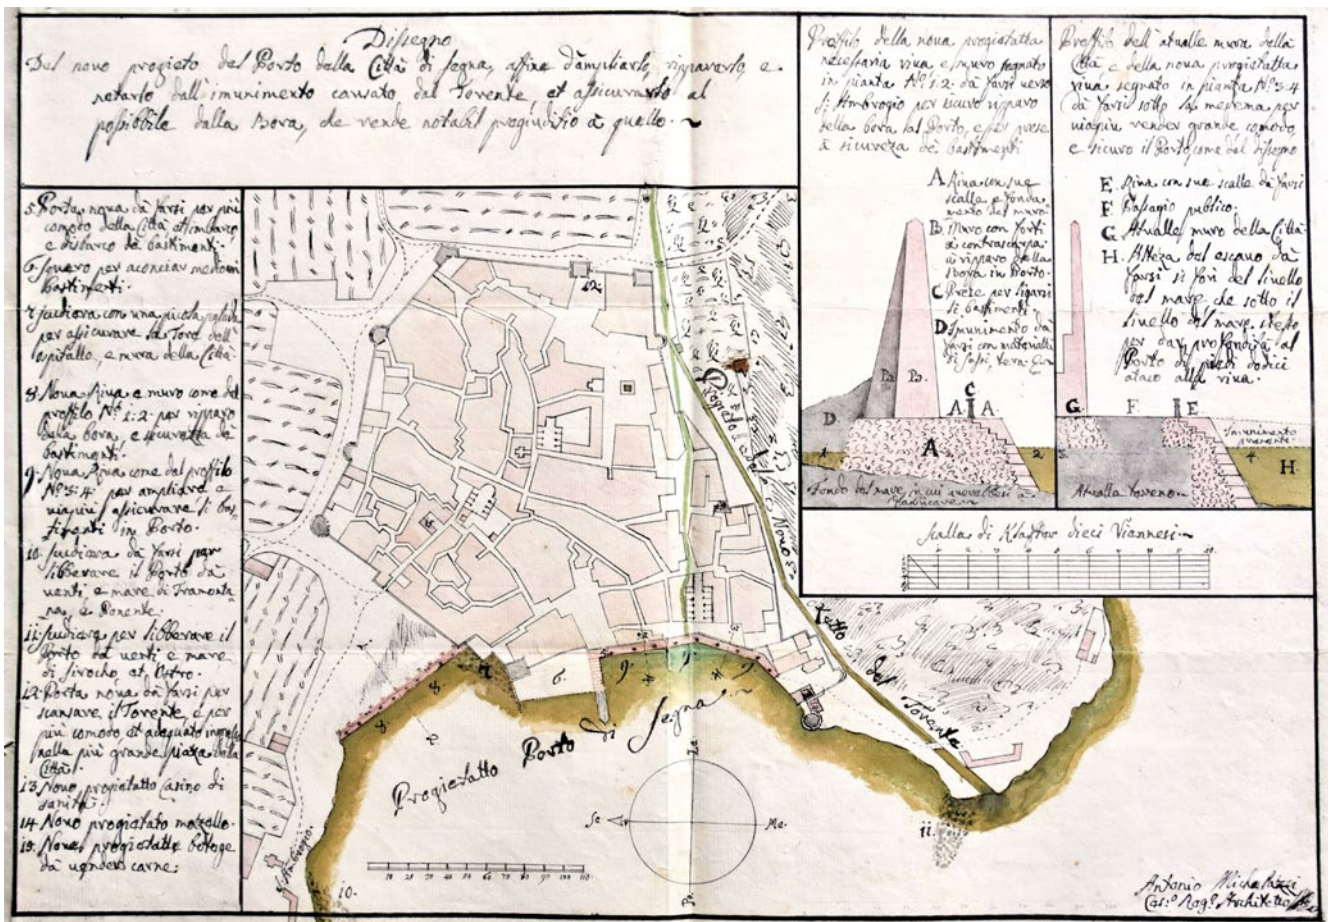 Dissegno
Del novo progieto del Porto della Città di Segna, affine d'ampliarlo, ripararlo, e
netarlo dall'imunimento causato dal Torente, et assicurarlo al
possibbile dalla Bora, che rende notabil progiudisio à quello.~
5. Porta nova dà farsi per più
comodo della Città et imbarco,
e disbarco dà bastimenti.
6. Squero per aconciar
bastimenti.
7. con una picola
per assicurare la Tore dell'
ospitalle, e mura della Città.
8. Nova Riva, e muro come dal
proffilo Nº 1:2: per ripparo
della bora, e sicurezza dà
bastimenti.
9. Nova Riva come dal proffilo
Nº 3:4: per ampliare e
viapiù assicurare li bas-
timenti in Porto.
10. dà farsi per
libberare il Porto dà
venti, e mare di Tramonta-
na, e Ponente.
11. per libberare il
Porto dà venti e mare
di Sirocho, et Ostro.
12. Porta nova dà farsi per
scansare il Torente, e per
più comodo et adequato
nella più grande piaza della
Città.
13. Novo progietatto Casino di
sanità.
14. Novo progietato mazello.
15. Nove progietatte botege
dà vender carne.
Proffilo della nova progietatta
necessaria riva e muro segnato
in pianta Nº 1:2: dà farsi verso
S: Ambrogio per sicuro riparo
della bora sul Porto, e per prese
à sicureza dei bastimenti
A Riva con sue
scalle e fonda-
mento del muro.
B. Muro con forti
à contrascarpa
à ripparo della
bora in Porto.
C Prese per ligarsi
li bastimenti.
D Imunimento dà
farsi con materialli
di sassi, tera,
B. B.
C
A A.
D
A
1
2
Fondo del mare in cui
Proffilo dell'atualle mura della
Città, e della nova progietatta
riva, segnato in pianta Nº 3:4
dà farsi sotto la medema per
viapiù render grande comodo,
e sicuro il Porto come dal disegno
E. Riva con sue scalle dà farsi
F. Passagio publico.
G. Atualle muro della Città.
H. Alteza del escavo dà
farsi si fori del livello
del mare che sotto il
livello del mare stesso
per dar profondità al
Porto di piedi dodici
ataco alla riva.
G. F. E
Imunimento
presente
3 4 H
Atualle tereno
Scalla di Klaftter dieci Viannesi.~
12.
Progieto del Novo
Letto del Torente
7 6. 9 9 9
8 8
Progietatto Porto di Segna
Le
So Me.
Po
S. Ambrogio.
10. 11.
10 20 30 40 50 60 70 80 90 100 110
Antonio Michelazzi
Ces.º Rag.º Architetto